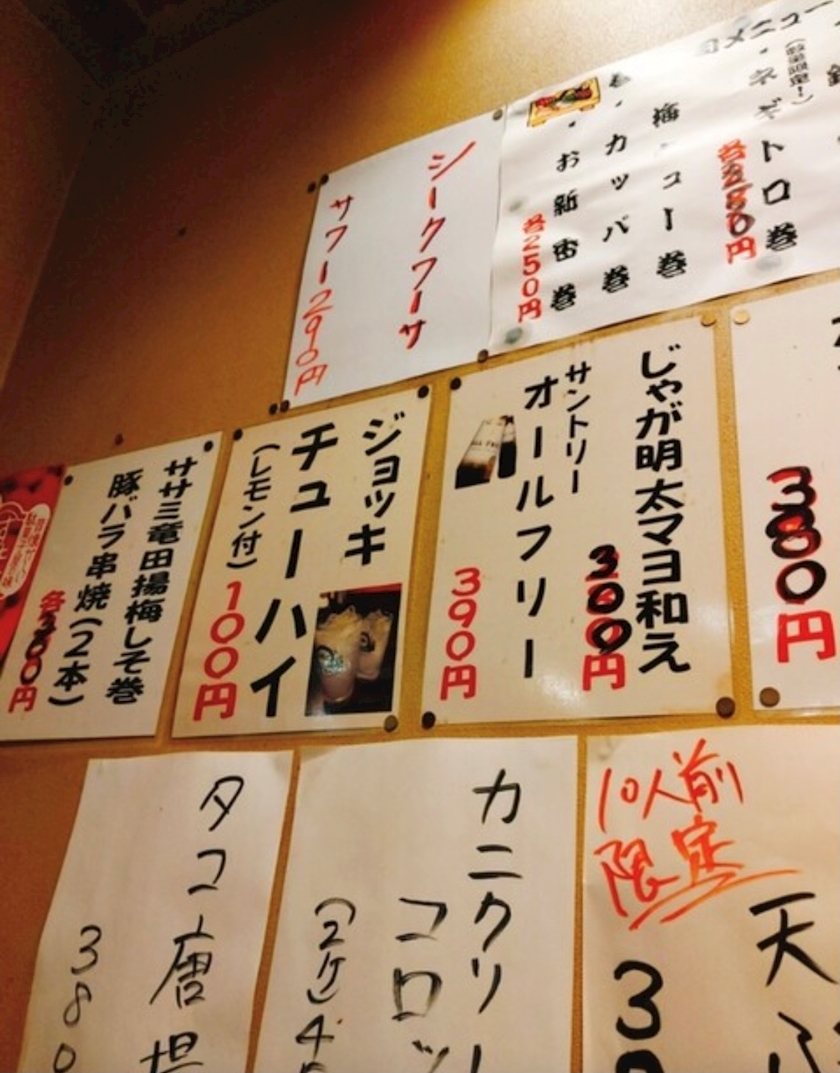 メニュー
(数量限定!)
・ネギトロ巻
円
梅・コー巻
・カッパ巻
・お新香巻
各250円
シークワーサ
サワー290円
じゃが明太マヨ和え
300円
サントリー
オールフリー
390円
380円
ジョッキ
チューハイ
(レモン付)
100円
ササミ竜田揚梅しそ巻
豚バラ串焼(2本)
各300円
10人前
限定
天ぷ
3
カニクリー
コロッ
(2ケ)4
タコ唐揚
380